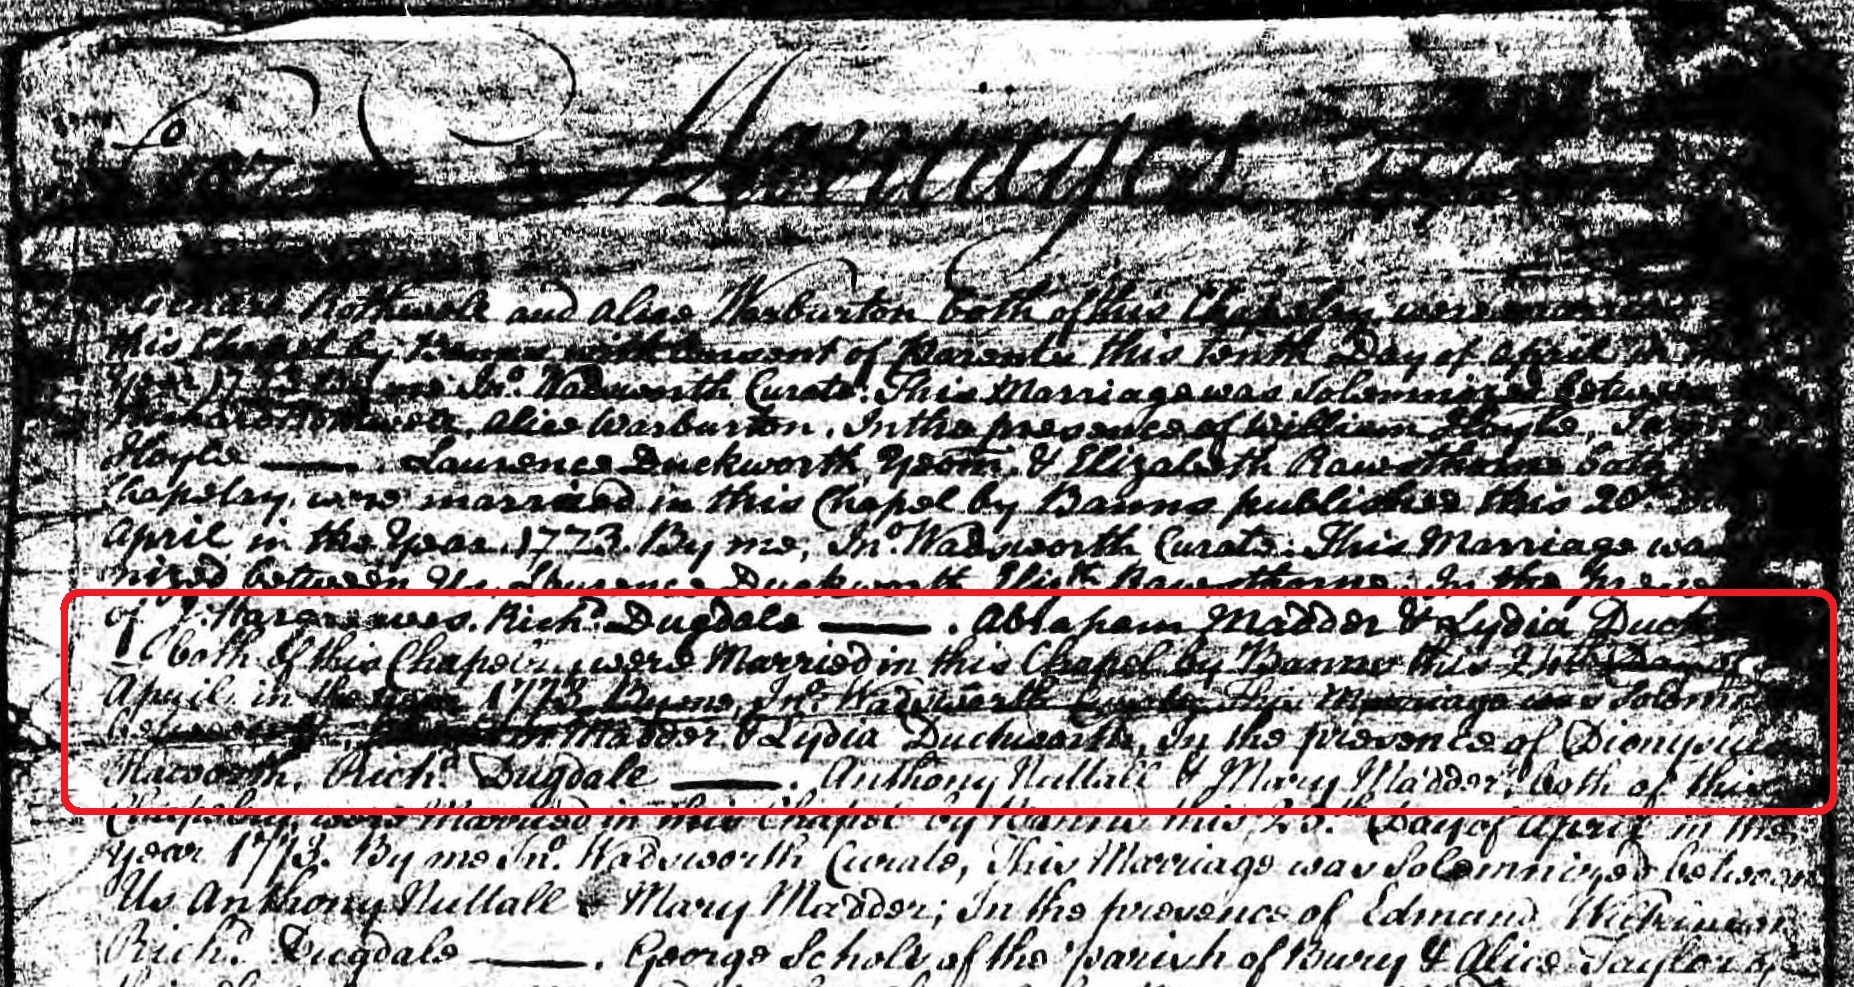 Marriages
Rothwell and Alice Warburton both of this Chapelry were
this Chapel by Banns with Consent of Parents this tenth Day of April in
Year me Jno. Wadsworth Curate. This Marriage was Solemnized between
Alice Warburton. In the presence of William Hoyle,
Hoyle — . Laurence Duckworth Yeom. & Elizabeth Rawsthorne both
Chapelry, were married in this Chapel by Banns published this 20th
April in the Year 1773. By me, Jno. Wadsworth Curate. This Marriage was
nized between Us Laurence Duckworth Elizth. Rawsthorne. In the
of Hargreaves. Richd. Dugdale — . Abraham Madder & Lydia Duck
both of this were Married in this Chapel by Banns this 24th
April in the year 1773 By me, Jno. Wadsworth Curate This Marriage was Solem
between Madder & Lydia Duckworth, In the presence of Dionysius
Richd. Dugdale — . Anthony Nuttall & Mary Madder, both of this
Chapelry, were Married in this Chapel by Banns this 25th. Day of April in the
year 1773. By me Jno. Wadsworth Curate, This Marriage was Solemnized between
Us Anthony Nuttall & Mary Madder; In the presence of Edmund
Richd. Dugdale — . George Scholes of the Parish of Bury & Alice Taylor of